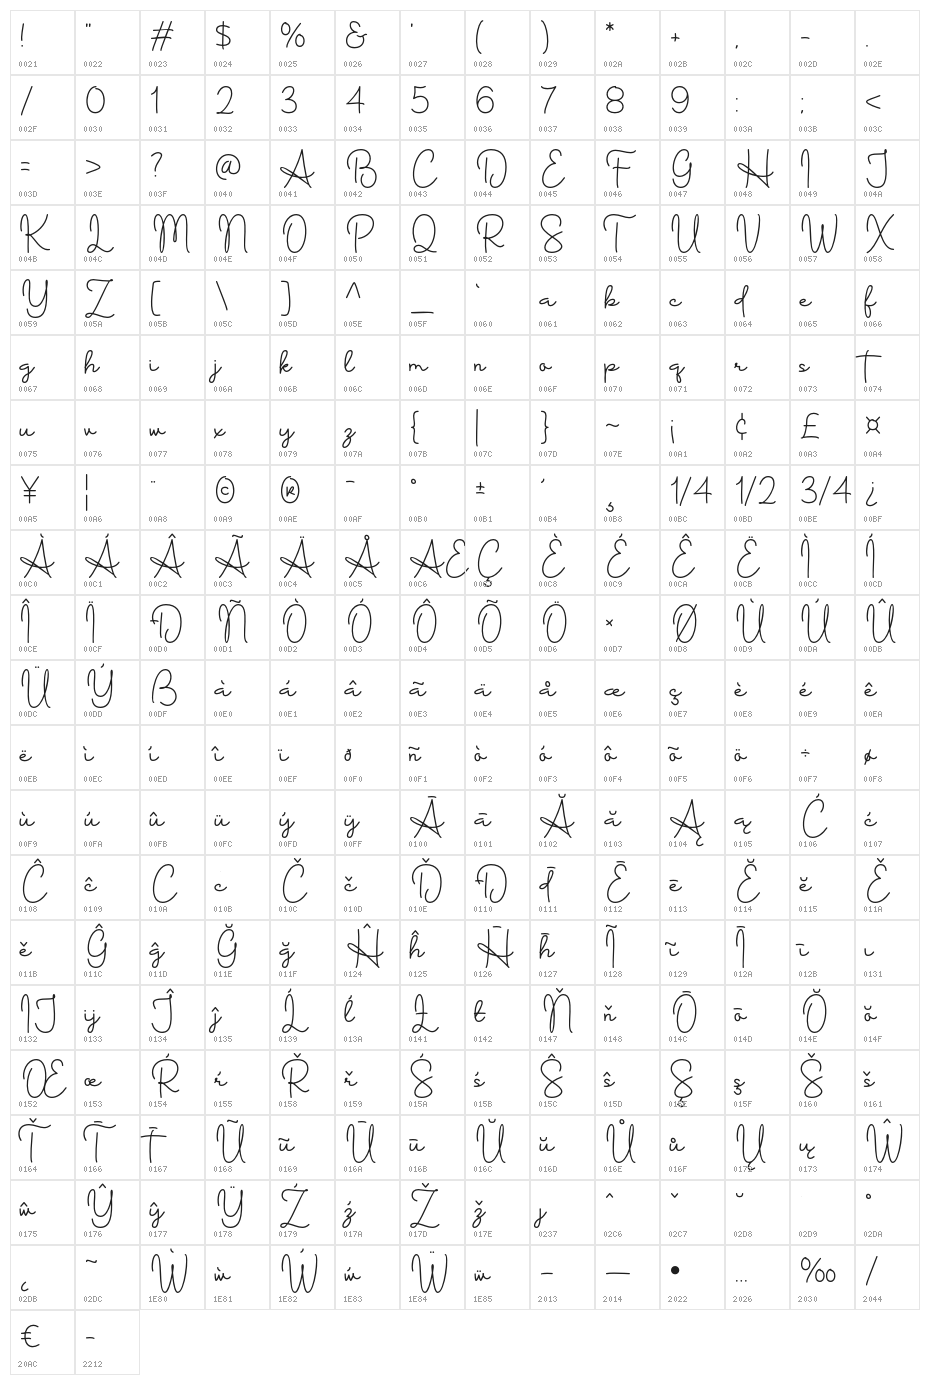 ! " # $ % & ' ( ) * + , - .
0021 0022 0023 0024 0025 0026 0027 0028 0029 002A 002B 002C 002D 002E
/ 0 1 2 3 4 5 6 7 8 9 : ; <
002F 0030 0031 0032 0033 0034 0035 0036 0037 0038 0039 003A 003B 003C
= > ? @ A B C D E F G H I J
003D 003E 003F 0040 0041 0042 0043 0044 0045 0046 0047 0048 0049 004A
K L M N O P Q R S T U V W X
004B 004C 004D 004E 004F 0050 0051 0052 0053 0054 0055 0056 0057 0058
Y Z [ \ ] ^ _ ` a b c d e f
0059 005A 005B 005C 005D 005E 005F 0060 0061 0062 0063 0064 0065 0066
g h i j k l m n o p q r s t
0067 0068 0069 006A 006B 006C 006D 006E 006F 0070 0071 0072 0073 0074
u v w x y z { | } ~ ¡ ¢ £ ¤
0075 0076 0077 0078 0079 007A 007B 007C 007D 007E 00A1 00A2 00A3 00A4
¥ ¦ ¨ © ® ¯ ° ± ´ ¸ 1/4 1/2 3/4 ¿
00A5 00A6 00A8 00A9 00AE 00AF 00B0 00B1 00B4 00B8 00BC 00BD 00BE 00BF
À Á Â Ã Ä Å Æ Ç È É Ê Ë Ì Í
00C0 00C1 00C2 00C3 00C4 00C5 00C6 00C7 00C8 00C9 00CA 00CB 00CC 00CD
Î Ï Ð Ñ Ò Ó Ô Õ Ö × Ø Ù Ú Û
00CE 00CF 00D0 00D1 00D2 00D3 00D4 00D5 00D6 00D7 00D8 00D9 00DA 00DB
Ü Ý ß à á â ã ä å æ ç è é ê
00DC 00DD 00DF 00E0 00E1 00E2 00E3 00E4 00E5 00E6 00E7 00E8 00E9 00EA
ë ì í î ï ð ñ ò ó ô õ ö ÷ ø
00EB 00EC 00ED 00EE 00EF 00F0 00F1 00F2 00F3 00F4 00F5 00F6 00F7 00F8
ù ú û ü ý ÿ Ā ā Ă ă Ą ą Ć ć
00F9 00FA 00FB 00FC 00FD 00FF 0100 0101 0102 0103 0104 0105 0106 0107
Ĉ ĉ Ċ ċ Č č Ď Đ đ Ē ē Ĕ ĕ Ě
0108 0109 010A 010B 010C 010D 010E 0110 0111 0112 0113 0114 0115 011A
ě Ĝ ĝ Ğ ğ Ĥ ĥ Ħ ħ Ĩ ĩ Ī ī ı
011B 011C 011D 011E 011F 0124 0125 0126 0127 0128 0129 012A 012B 0131
Ĳ ĳ Ĵ ĵ Ĺ ĺ Ł ł Ň ň Ō ō Ŏ ŏ
0132 0133 0134 0135 0139 013A 0141 0142 0147 0148 014C 014D 014E 014F
Œ œ Ŕ ŕ Ř ř Ś ś Ŝ ŝ Ş ş Š š
0152 0153 0154 0155 0158 0159 015A 015B 015C 015D 015E 015F 0160 0161
Ť Ŧ ŧ Ũ ũ Ū ū Ŭ ŭ Ů ů Ų ų Ŵ
0164 0166 0167 0168 0169 016A 016B 016C 016D 016E 016F 0172 0173 0174
ŵ Ŷ ŷ Ÿ Ź ź Ž ž ȷ ˆ ˇ ˘ ˚
0175 0176 0177 0178 0179 017A 017D 017E 0237 02C6 02C7 02D8 02D9 02DA
˛ ˜ Ẁ ẁ Ẃ ẃ Ẅ ẅ – — • … ‰ ⁄
02DB 02DC 1E80 1E81 1E82 1E83 1E84 1E85 2013 2014 2022 2026 2030 2044
€ −
20AC 2212